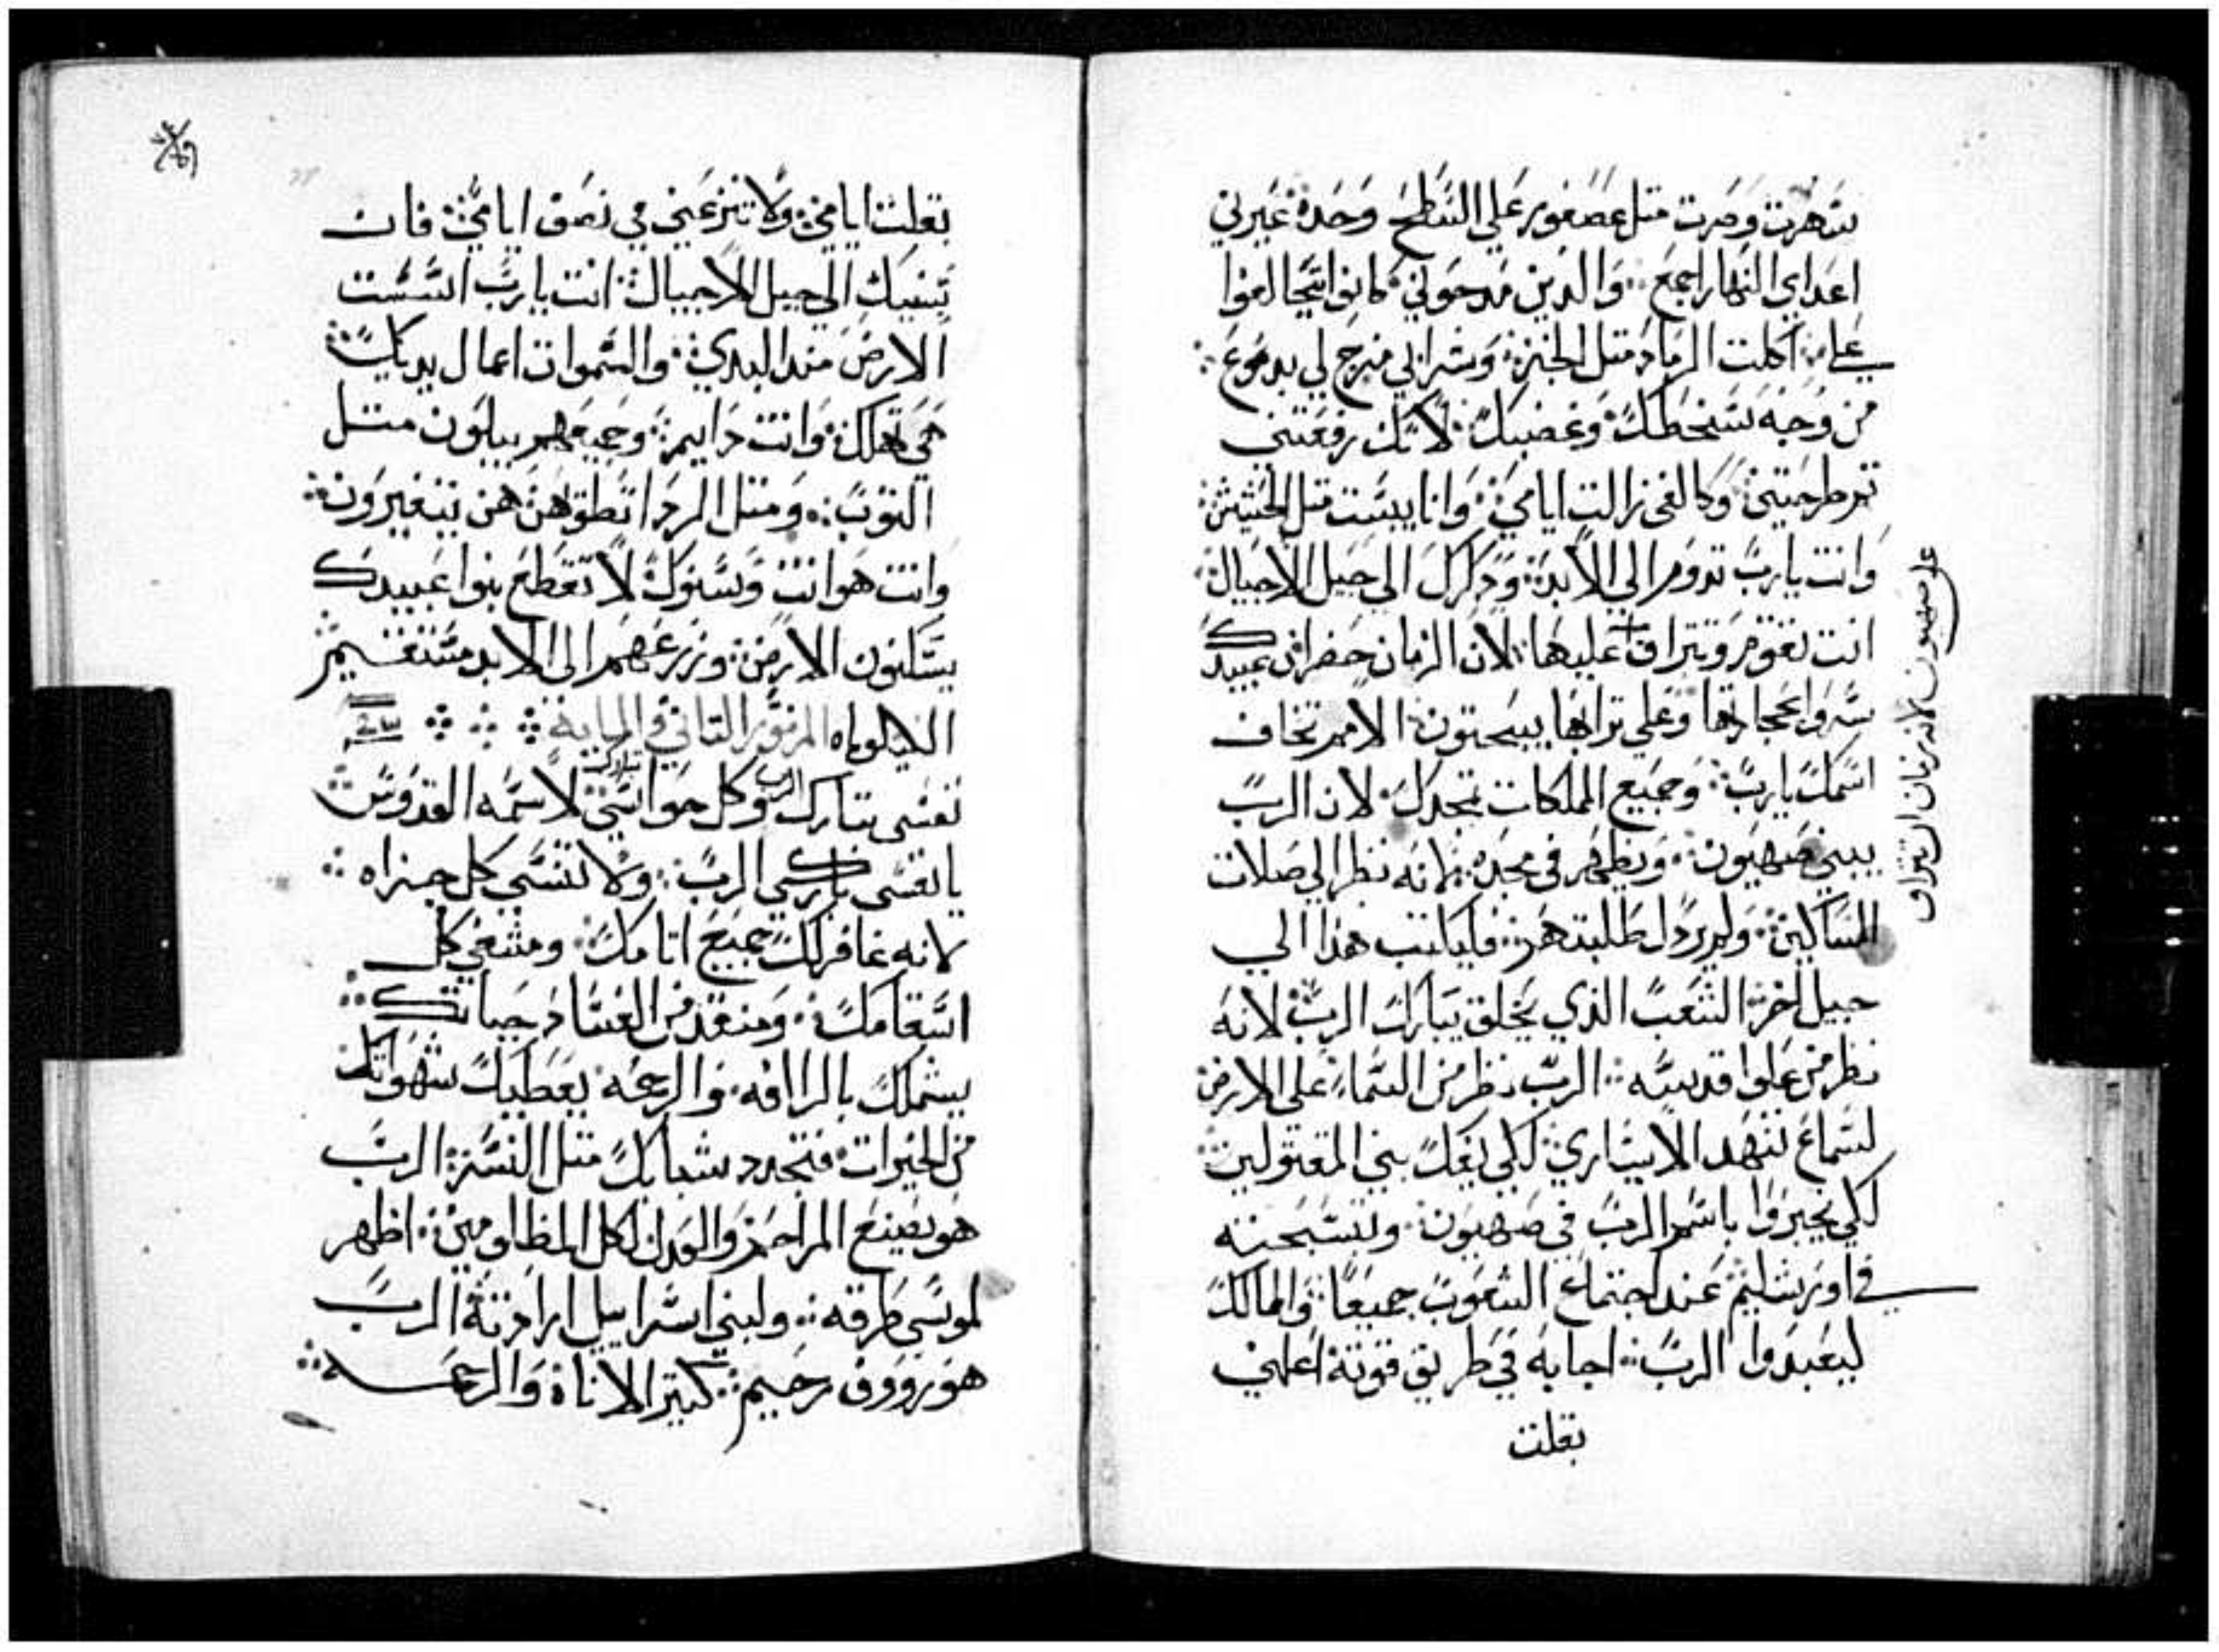 سهرت وصرت متل عصفور علي السطح وحده عيرني
اعداي النهار اجمع والدين مدحوني كانوا يتحالفوا
علي اكلت الرماد متل الخبز وشرابي مزج لي بدموع
من وجه سخطك وغضبك لانك رفعتني
تم طرحتني وكالفي زالت ايامي وانا يبست متل الحشيش
وانت يارب تدوم الي الابد ودكرك الي جيل الاجيال
انت تقوم وتتراف عليها لان الزمان حضر ان عبيدك
سروا بحجارتها وعلي ترابها يبحتون الامم تخاف
اسمك يارب وجميع الملكات تمجدك لان الرب
يبني صهيون ويظهر في مجده لانه نظر الي صلات
المساكين ولم يردل طلبتهم فليكتب هدا الي
جيل اخر الشعب الذي يخلق يبارك الرب لانه
نظر من علوا قدسه الرب نظر من السماء علي الارض
لسماع تنهد الاساري لكي يفك بني المقتولين
لكي يخبروا باسم الرب في صهيون وتسبحته
في اورشليم عند اجتماع الشعوب جميعا والممالك
ليعبدوا الرب اجابه في طريق قوته اعلمني
بقلت
علي صهيون لان زمان التراف
بقلت ايامي ولا تنزعني في نصف ايامي فان
سنيك الي جيل الاجيال انت يارب اسست
الارض مند البدي والسموات اعمال يديك
هي تهلك وانت دايم وجميعهم يبلون متل
التوب ومتل الردا تطويهن هن يتغيرون
وانت هو انت وسنوك لا تقطع بنوا عبيدك
يسكنون الارض وزرعهم الي الابد مستقيم
الليلوياه المزمور التاني والمايه
نفسي تبارك الرب وكل حواسي تبارك لاسمه القدوس
يا نفسي باركي الرب ولا تنسي كل جزاه
لانه غافر لك جميع اتامك ومشفي كل
اسقامك ومنقد من الفساد حياتك
يشملك بالرافه والرحمه يعطيك شهواتك
من الخيرات فتجدد شبابك متل النسر الرب
هو يصنع المراحم والعدل لكل المظلومين اظهر
لموسي طرقه ولبني اسراييل ارادته الرب
هو رووف رحيم كتير الاناة والرحمه